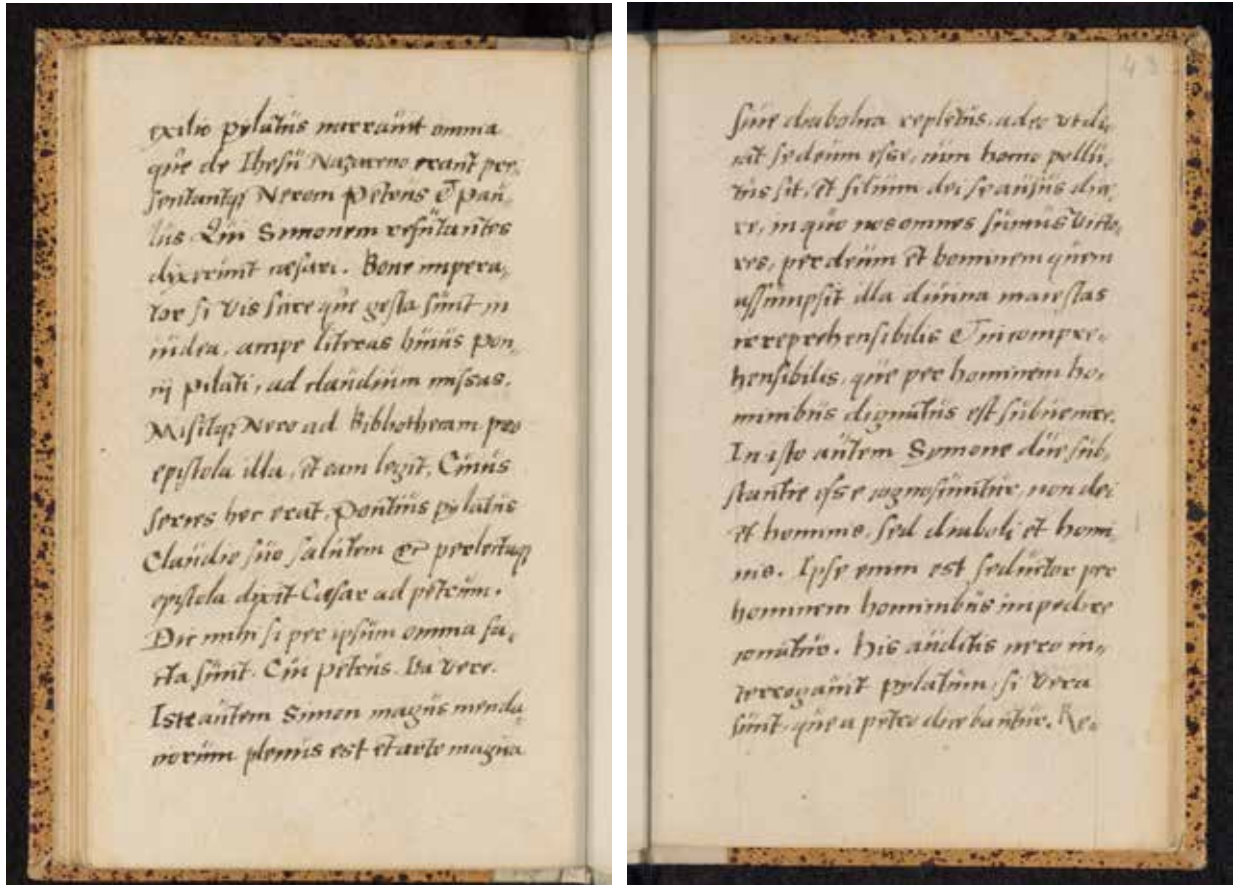 exilio pylatus narrauit omnia
que de Ihesu Nazareno erant pre,
sentantq; Neroni Petrus & Pau,
lus Qui Simonem refutantes
dixerunt cæsari. Bone impera,
tor si vis scire que gesta sunt in
iudea, accipe literas huius Pon,
tij Pilati, ad claudium missas.
Misitq; Nero ad Bibliothecam pro
epistola illa, et eam legit, Cuius
series hec erat. Pontius pylatus
Claudio suo salutem &c perlectaq;
epistola dixit Cæsar ad petrum.
Dic mihi si per ipsum omnia fa,
cta sunt. Cui petrus. Ita vere.
Iste autem Simon magus menda
tiorum plenus est et arte magica
43
siue diabolica repletus, adeo vt di,
cat se deum esse, cum homo pollu,
tus sit, et filium dei se ausus dice,
re, in quo nos omnes sumus victo,
res, per deum et hominem quem
assumpsit illa diuina maiestas
irreprehensibilis & incompre,
hensibilis, que per hominem ho,
minibus dignatus est subuenire.
In isto autem Symone due sub,
stantie esse cognoscuntur, non dei
et hominis, sed diaboli et homi
nis. Ipse enim est seductor per
hominem hominibus impedire
conatur. His auditis nero in,
terrogauit pylatum, si vera
sunt, que a petro dicebantur. Re,